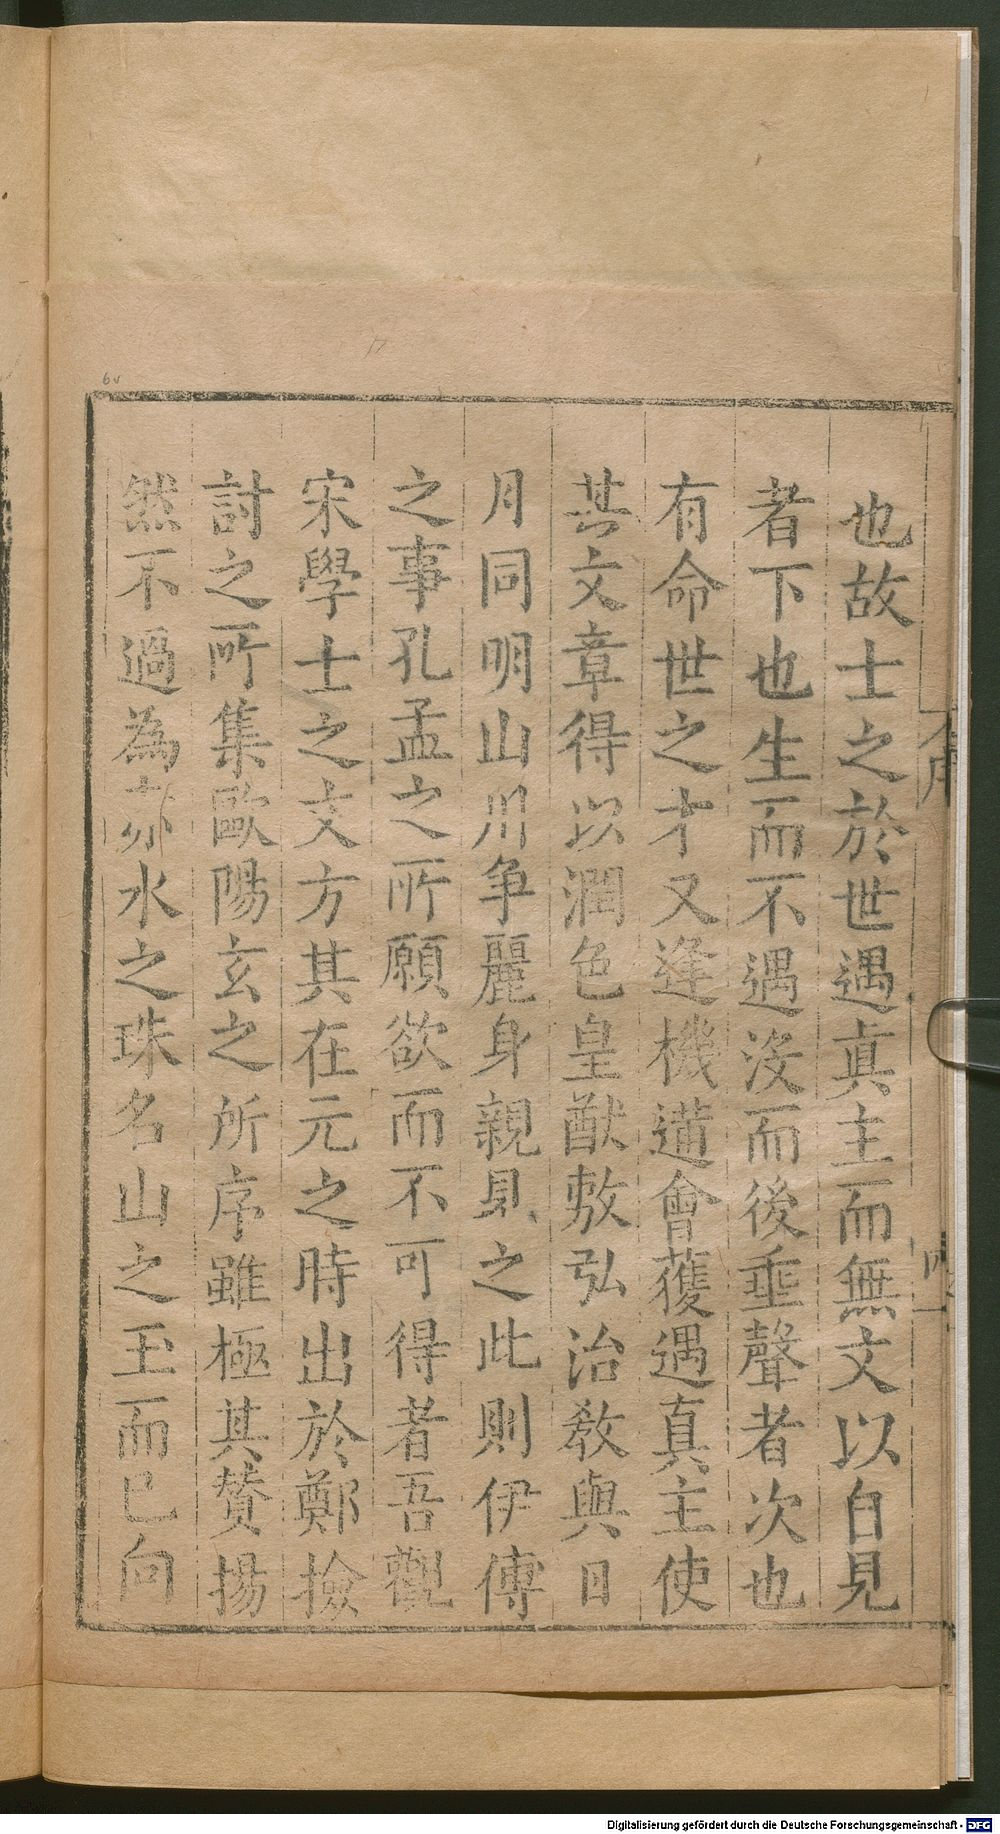 也故士之於世遇真主而無文以自見
者下也生而不遇沒而後垂聲者次也
有命世之才又逢機遘會獲遇真主使
其文章得以潤色皇猷敷弘治教與日
月同明山川争麗身親見之此則伊傅
之事孔孟之所願欲而不可得者吾觀
宋學士之文方其在元之時出於鄭撿
討之所集歐陽玄之所序雖極其賛揚
然不過為赤水之珠名山之玉而已向
6v
Digitalisierung gefördert durch die Deutsche Forschungsgemeinschaft - DFG